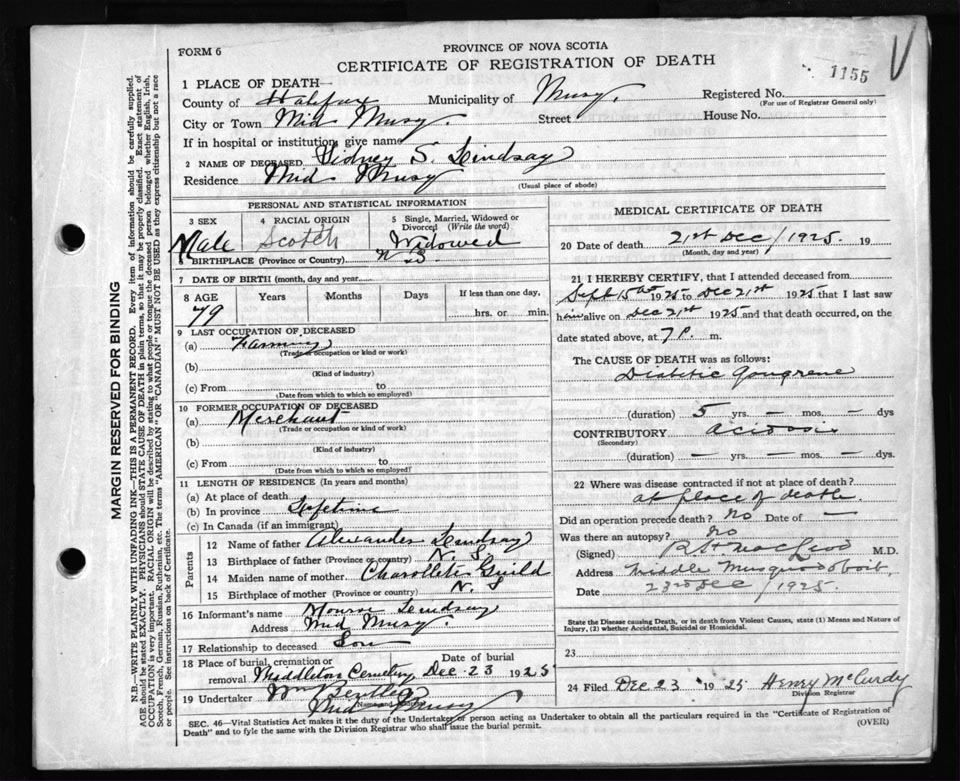 FORM 6
PROVINCE OF NOVA SCOTIA
CERTIFICATE OF REGISTRATION OF DEATH
1155
1 PLACE OF DEATH
County of Halifax Municipality of Musq. Registered No.
(For use of Registrar General only)
City or Town Mid Musq. Street House No.
If in hospital or institution, give name
2 NAME OF DECEASED Sidney S. Lindsay
Residence Mid Musq
(Usual place of abode)
PERSONAL AND STATISTICAL INFORMATION
3 SEX
Male
4 RACIAL ORIGIN
Scotch
5 Single, Married, Widowed or Divorced (Write the word)
Widowed
6 BIRTHPLACE (Province or Country) N S.
7 DATE OF BIRTH (month, day and year)
8 AGE Years Months Days If less than one day,
79 hrs. or min.
9 LAST OCCUPATION OF DECEASED
(a) Farming
(Trade, occupation or kind or work)
(b)
(Kind of industry)
(c) From to
(Date from which to which so employed)
10 FORMER OCCUPATION OF DECEASED
(a) Merchant
(Trade or occupation or kind of work)
(b)
(Kind of industry)
(c) From to
(Date from which to which so employed)
11 LENGTH OF RESIDENCE (In years and months)
(a) At place of death
(b) In province Lifetime
(c) In Canada (if an immigrant)
Parents
12 Name of father Alexander Lindsay
13 Birthplace of father (Province or country) N. S
14 Maiden name of mother. Guild
15 Birthplace of mother (Province or country) N. S
16 Informant's name Lindsay
Address Mid Musq.
17 Relationship to deceased Son
18 Place of burial, cremation or removal Middleton Cemetery Date of burial Dec 23 1925
19 Undertaker Wm
(Name and Address)
Mid Musq
MEDICAL CERTIFICATE OF DEATH
20 Date of death 21st Dec / 1925. 19
(Month, day and year)
21 I HEREBY CERTIFY, that I attended deceased from
Sept 15th 1925 to Dec 21st 1925 that I last saw
him alive on Dec 21st 1925 and that death occurred, on the
date stated above, at 7 P. m.
The CAUSE OF DEATH was as follows:
Diabetic Gangrene
(duration) 5 yrs. — mos. — dys
CONTRIBUTORY acidosis
(Secondary)
(duration) — yrs. — mos. — dys.
22 Where was disease contracted if not at place of death?
at place of death.
Did an operation precede death? No Date of —
Was there an autopsy? No
(Signed) MacLeod M.D.
Address Middle Musquodoboit,
Date 23rd Dec / 1925.
State the Disease causing Death, or in death from Violent Causes, state (1) Means and Nature of
Injury, (2) whether Accidental, Suicidal or Homicidal.
23
24 Filed Dec 23 1925 Henry McCurdy
Division Registrar
SEC. 46—Vital Statistics Act makes it the duty of the Undertaker or person acting as Undertaker to obtain all the particulars required in the "Certificate of Registration of
Death" and to fyle the same with the Division Registrar who shall issue the burial permit.
(OVER)
MARGIN RESERVED FOR BINDING
N.B.—WRITE PLAINLY WITH UNFADING INK—THIS IS A PERMANENT RECORD. Every item of information should be carefully supplied.
AGE should be stated EXACTLY. PHYSICIANS should STATE CAUSE OF DEATH in plain terms, so that it may be properly classified. Exact statement of
OCCUPATION is very important. RACIAL ORIGIN will be described by stating to what people or tongue the deceased person belonged whether English, Irish,
Scotch, French, German, Russian, Ruthenian, etc. The terms "AMERICAN" OR "CANADIAN" MUST NOT BE USED as they express citizenship but not a race
or people. See instructions on back of Certificate.